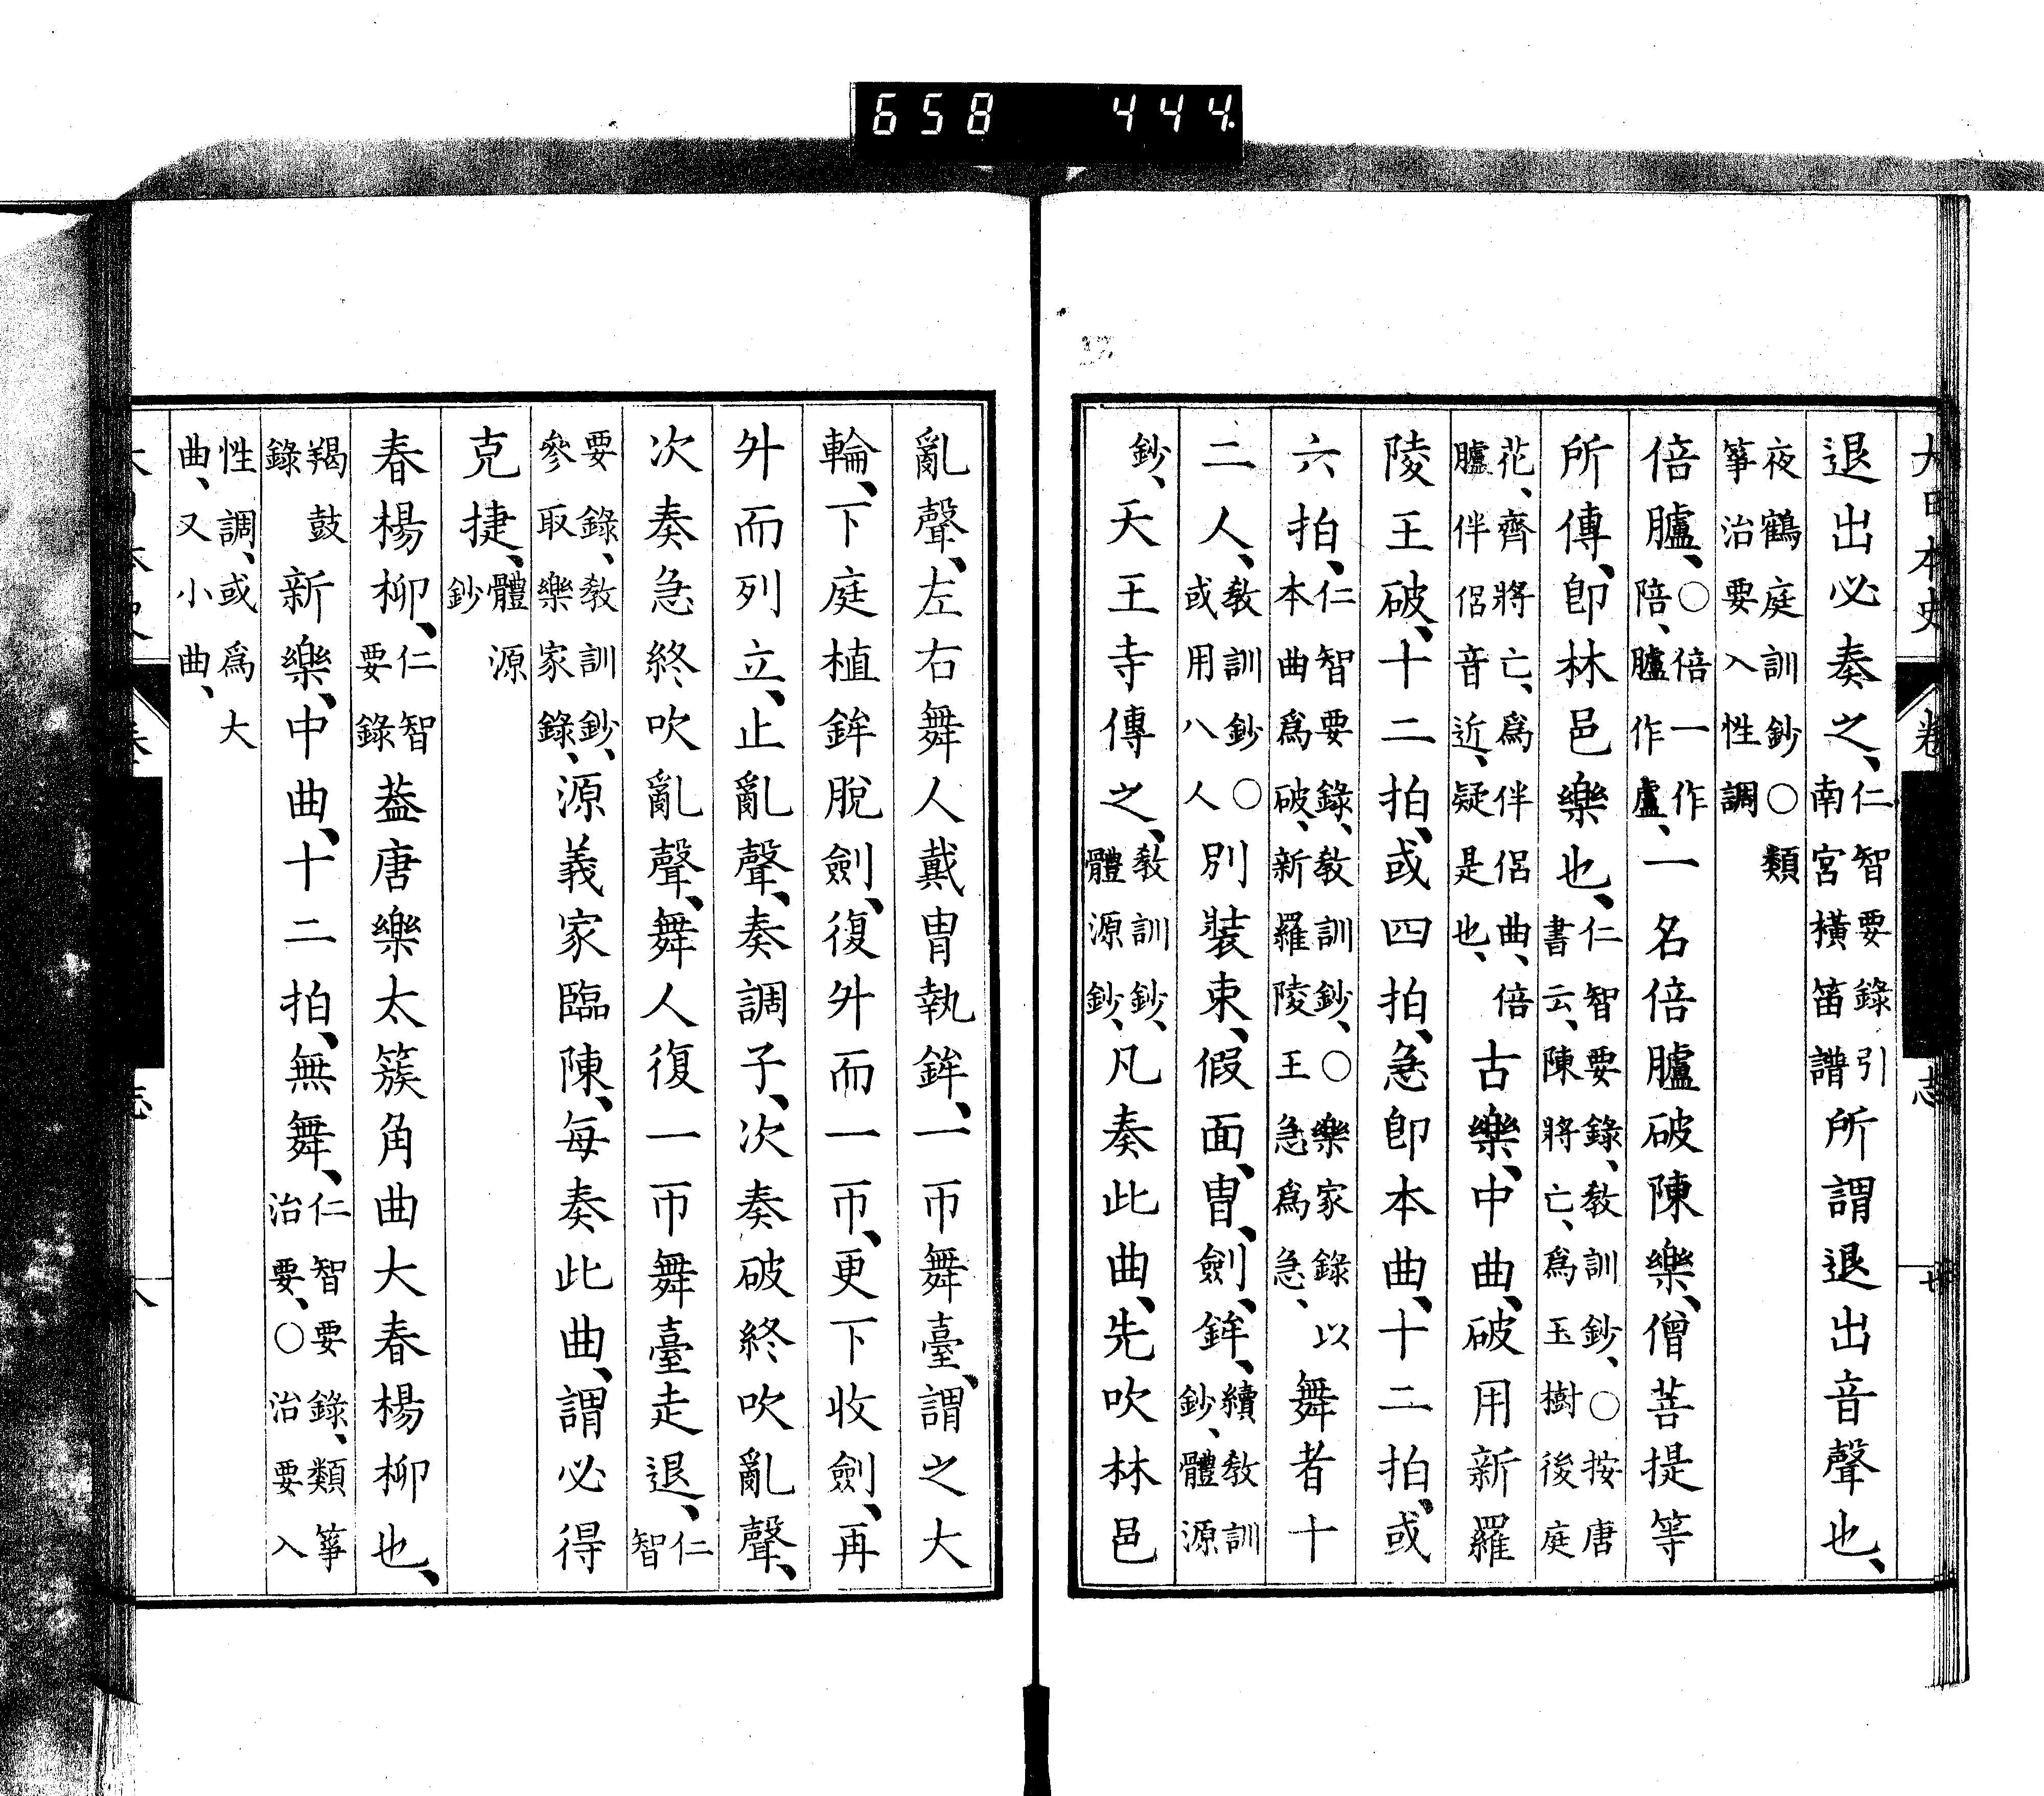 658 444.
大日本史 卷 志 廿
退出必奏之、仁智要錄引南宮橫笛譜所謂退出音聲也、
夜鶴庭訓鈔○類箏治要入性調
倍臚、○倍一作陪、臚作盧、一名倍臚破陳樂、僧菩提等
所傳、卽林邑樂也、仁智要錄、敎訓鈔、○按唐書云、陳將亡、爲玉樹後庭
花、齊將亡、爲伴侶曲、倍臚伴侶音近、疑是也、古樂、中曲、破用新羅
陵王破、十二拍、或四拍、急卽本曲、十二拍、或
六拍、仁智要錄、敎訓鈔、○樂家錄以本曲爲破、新羅陵王急爲急、舞者十
二人、敎訓鈔○或用八人別裝束、假面、冑、劍、鉾、續敎訓鈔、體源
鈔、天王寺傳之、敎訓鈔、體源鈔、凡奏此曲、先吹林邑
亂聲、左右舞人戴冑執鉾、一帀舞臺、謂之大
輪、下庭植鉾脫劍、復升而一帀、更下收劍、再
升而列立、止亂聲、奏調子、次奏破終吹亂聲、
次奏急終吹亂聲、舞人復一帀舞臺走退、仁智
要錄、敎訓鈔、參取樂家錄、源義家臨陳、每奏此曲、謂必得
克捷、體源鈔
春楊柳、仁智要錄葢唐樂太簇角曲大春楊柳也、
羯鼓錄新樂、中曲、十二拍、無舞、仁智要錄、類箏治要、○治要入
性調、或爲大曲、又小曲、